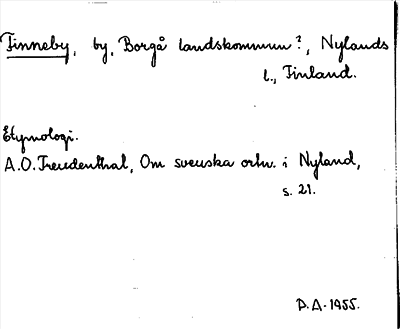 Finneby, by, Borgå landskommun?, Nylands
l., Finland.
Etymologi.
A.O. Freudenthal, Om svenska ortn. i Nyland,
s. 21.
P.A. 1955.